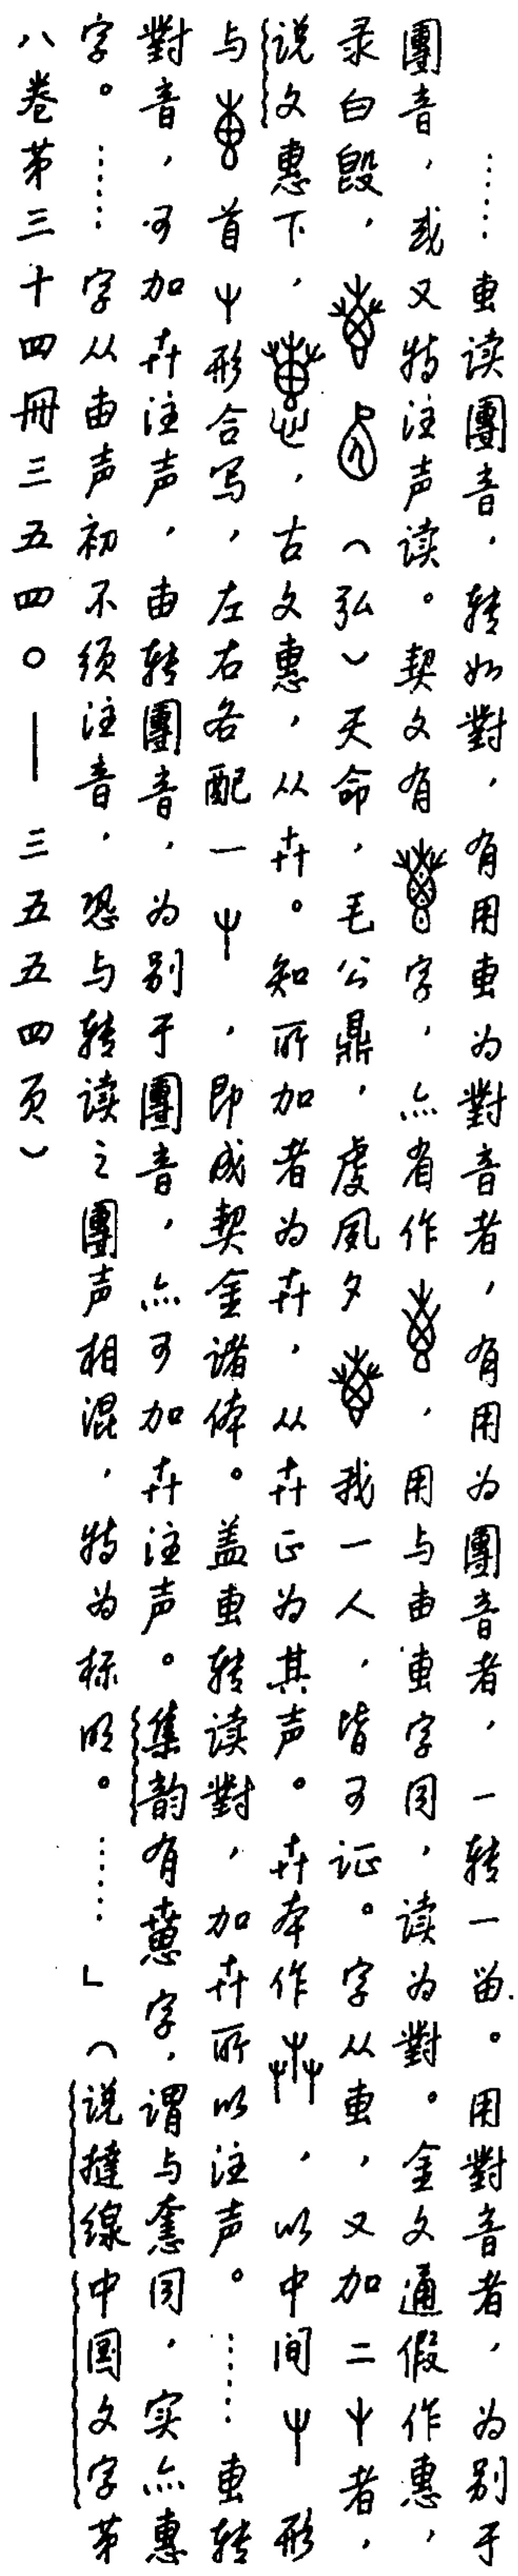 ……叀读團音，转如對，有用叀为對音者，有用为團音者，一转一畄。用對音者，为别于
團音，或又特注声读。契文有字，亦省作，用与由叀字同，读为對。金文通假作惠，
录白𣪘，（弘）天命，毛公鼎，虔夙夕我一人，皆可证。字从叀，又加二屮者，
说文惠下，，古文惠，从卉。知所加者为卉，从卉正为其声。卉本作，以中间屮形
与首屮形合写，左右各配一屮，即成契金诸体。盖叀转读對，加卉所以注声。……叀转
對音，可加卉注声，由转團音，为别于團音，亦可加卉注声。集韵有字，谓与同，实亦惠
字。……字从由声初不须注音，恐与转读之團声相混，特为标明。……」（说挞线中国文字第
八卷第三十四冊三五四〇——三五五四页）